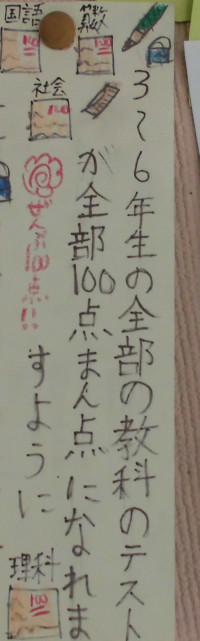 国語
算数
社会
3〜6年生の全部の教科のテスト
が全部100点まん点になれま
すように
ぜんぶ100点!!
理科